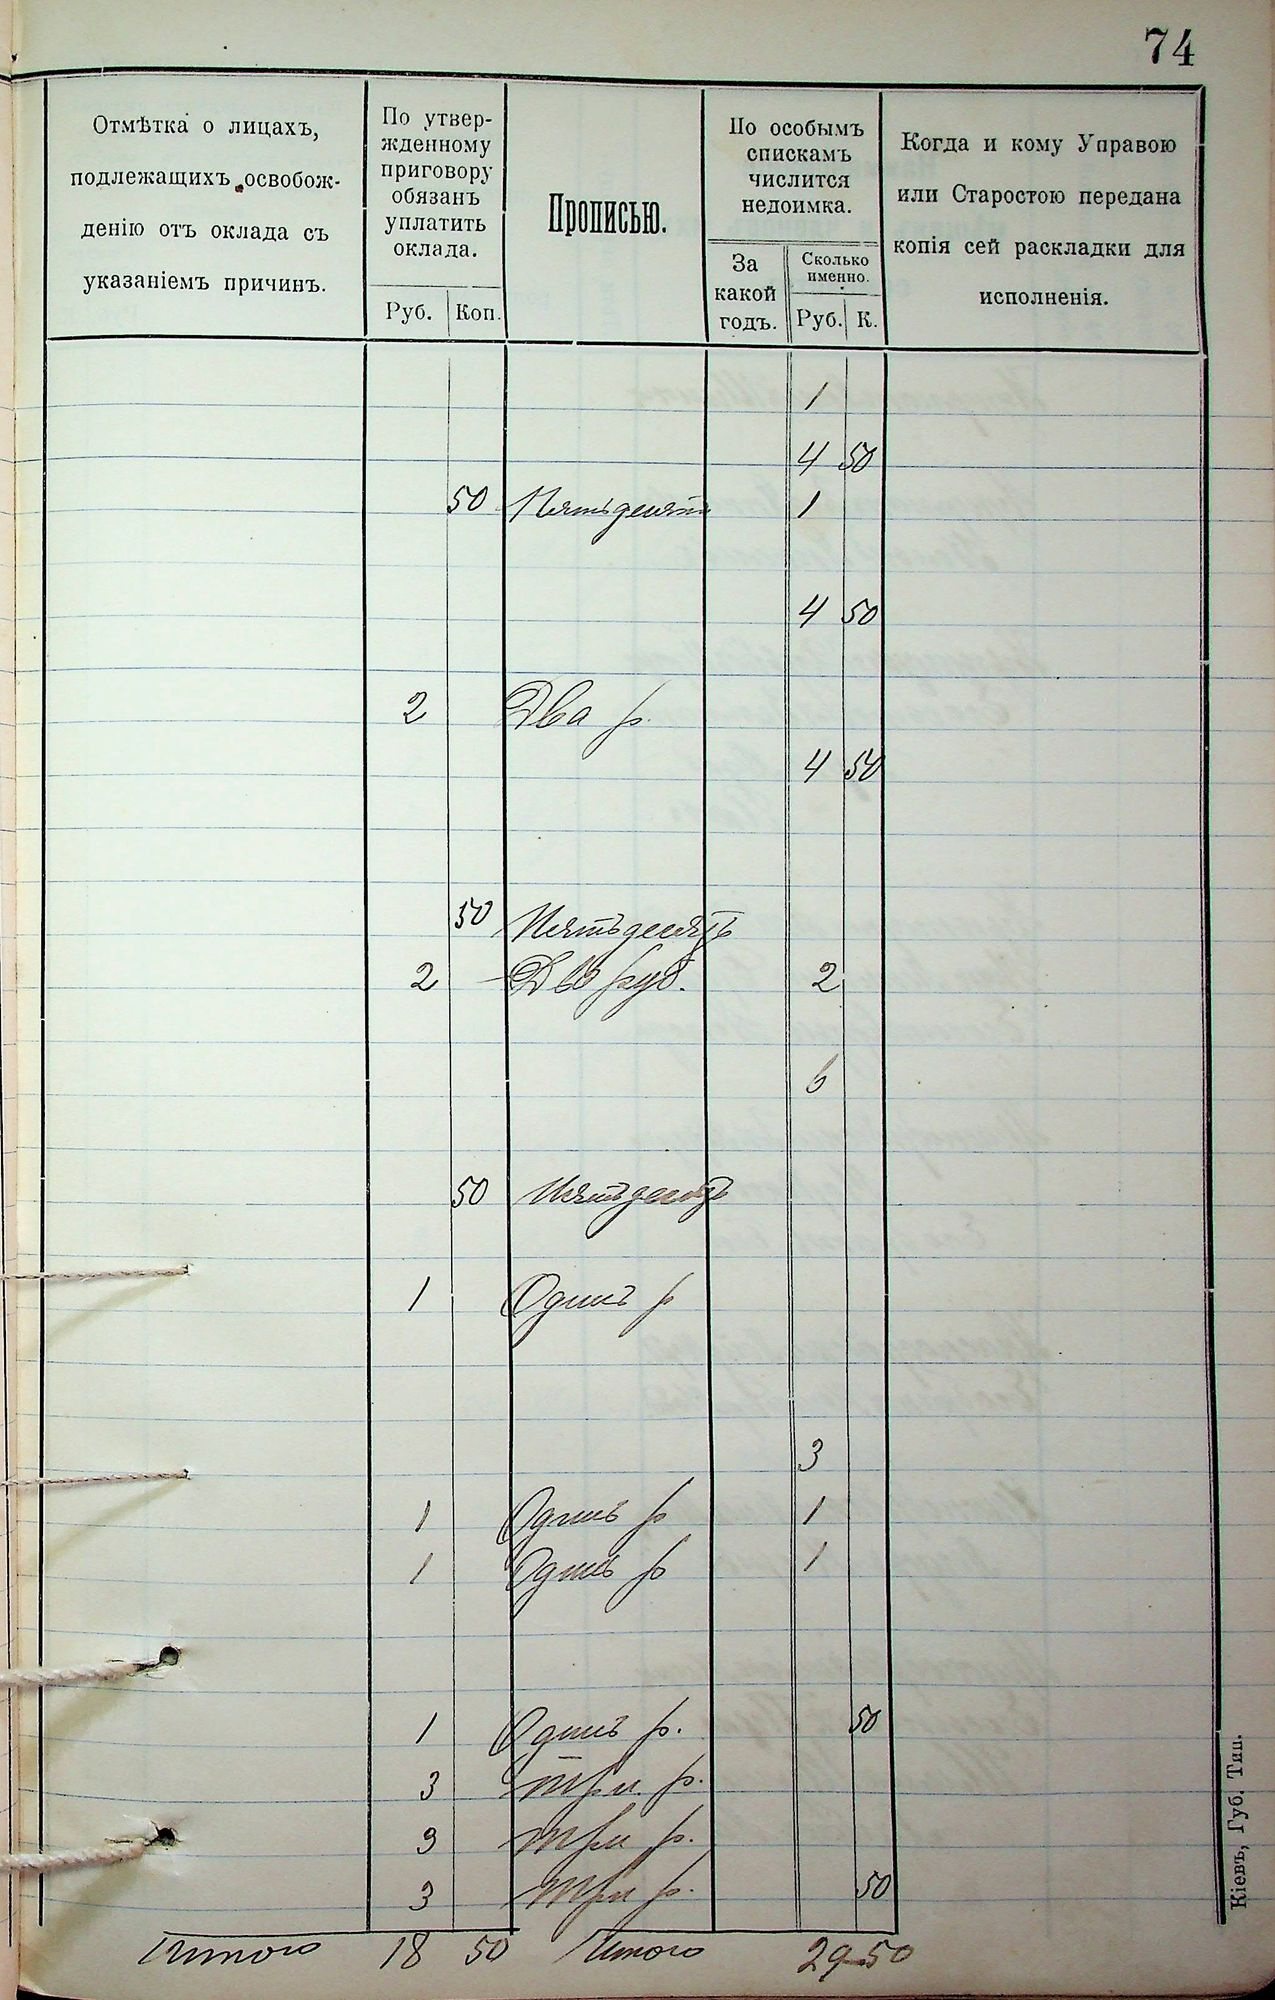 74
Отмѣтка о лицахъ,
подлежащихъ освобож-
денію отъ оклада съ
указаніемъ причинъ.
По утвер-
жденному
приговору
обязанъ
уплатить
оклада.
Руб. Коп.
Прописью.
По особымъ
спискамъ
числится
недоимка.
За
какой
годъ.
Сколько
именно.
Руб. К.
Когда и кому Управою
или Старостою передана
копія сей раскладки для
исполненія.
1
4 50
50 Пятьдесятъ 1
4 50
2 Два р.
4 50
50 Пятьдесятъ
2 Два руб. 2
6
50 Пятьдесятъ
1 Одинъ р
3
1 Одинъ р 1
1 Одинъ р 1
1 Одинъ р. 50
3 Три р.
3 Три р.
3 Три р. 50
Итого 18 50 Итого 29-50
Кіевъ, Губ. Тип.